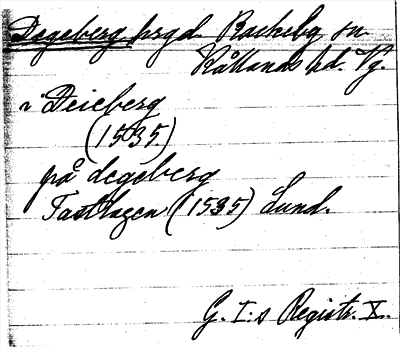 Degeberg prgd. Rackeby sn
Kållands hd. Vg.
i Deieberg
(1535)
på degeberg
Fasthagen (1535) Lund.
G. I:s Registr. X.